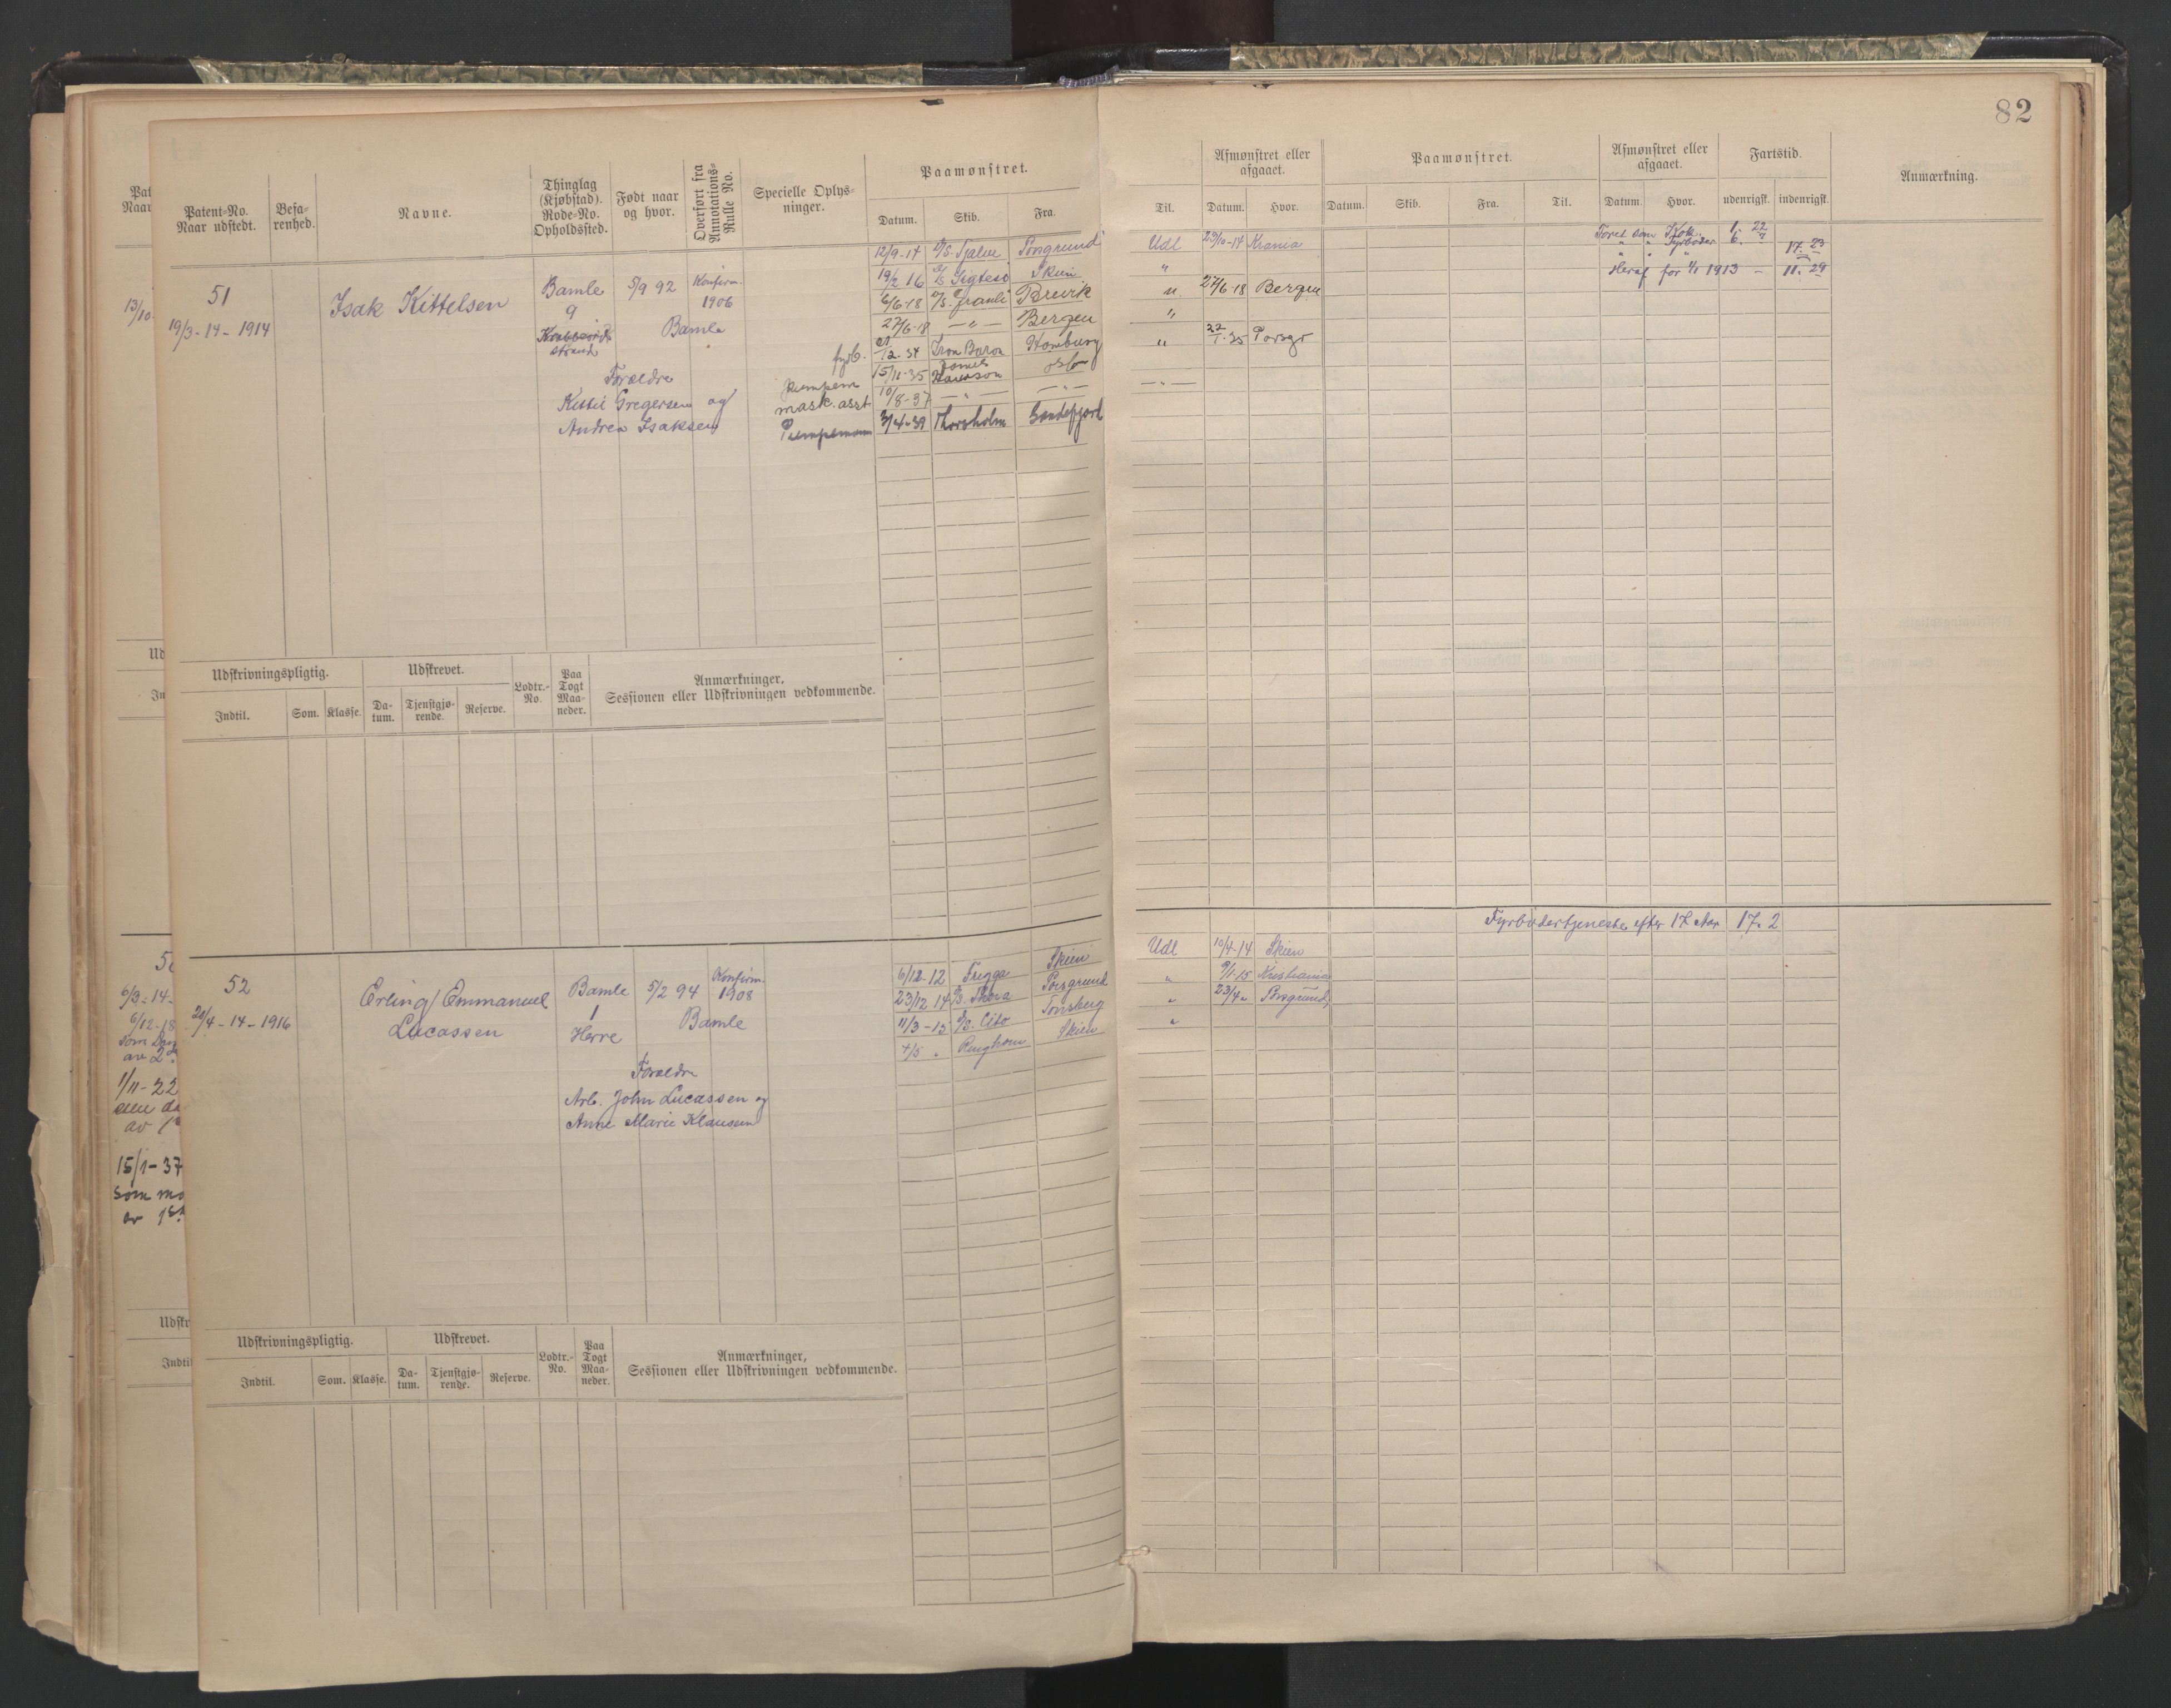 82
Patent-No.
Naar udstedt.
Befa-
renhed.
Navne.
Thinglag
(Kjøbstad).
Rode-No.
Opholdssted.
Født naar
og hvor.
Overført fra
Annotations-
Rulle No.
Specielle Oplys-
ninger.
Paamønstret.
Datum. Skib. Fra.
Til.
Afmønstret eller
afgaaet.
Datum. Hvor.
Paamønstret.
Datum. Skib. Fra. Til.
Afmønstret eller
afgaaet.
Datum. Hvor.
Fartstid.
udenrigsk. indenrigsk.
Anmærkning.
51
19/3-14-1914
Isak Kittelsen
Bamle
9
strand
5/9 92
Bamle
Konfirm.
1906
Forældre
Kittil Gregersen og
Andrea Isaksen
12/9-14 D/S. Fjalar Porsgrund Udl 29/10-14 Krania
19/2 16 Skien "
6/6-18 D/S. Brevik " 27/6-18 Bergen
27/6-18 — " — Bergen "
fyrb. 21/12-34 Iron Baron Hamburg " 22/1-35 Porsgr
pumpem 15/11-35 Oslo — " —
mask.asst 10/8-37 — " — — " —
Pumpemann 3/4-39 Thorsholm Sandefjord
Faret som Kok 1. 22
" " Fyrbøder 6. 17. 23
Heraf før 1/1 1913 – 11. 29
Udskrivningspligtig.
Indtil. Som. Klasse.
Udskrevet.
Da-
tum.
Tjenstgjø-
rende.
Reserve.
Lodtr.-
No.
Paa
Togt
Maa-
neder.
Anmærkninger,
Sessionen eller Udskrivningen vedkommende.
Fyrbødertjeneste efter 17 Aar 17. 2
52
-14-1916
Erling Emmanuel
Lucassen
Bamle
1
Herre
5/2 94
Bamle
Konfirm.
1908
Forældre
Arb. John Lucassen og
Anne Marie Klausen
6/12-12 Frigga Skien Udl 10/4-14 Skien
23/12 14 D/S. Thora Porsgrund " 9/1-15 Kristiania
11/3-15 D/S. Cito Tønsberg " 23/4 " Porsgrund
4/5 " Ringhorn Skien "
Udskrivningspligtig.
Indtil. Som. Klasse.
Udskrevet.
Da-
tum.
Tjenstgjø-
rende.
Reserve.
Lodtr.-
No.
Paa
Togt
Maa-
neder.
Anmærkninger,
Sessionen eller Udskrivningen vedkommende.